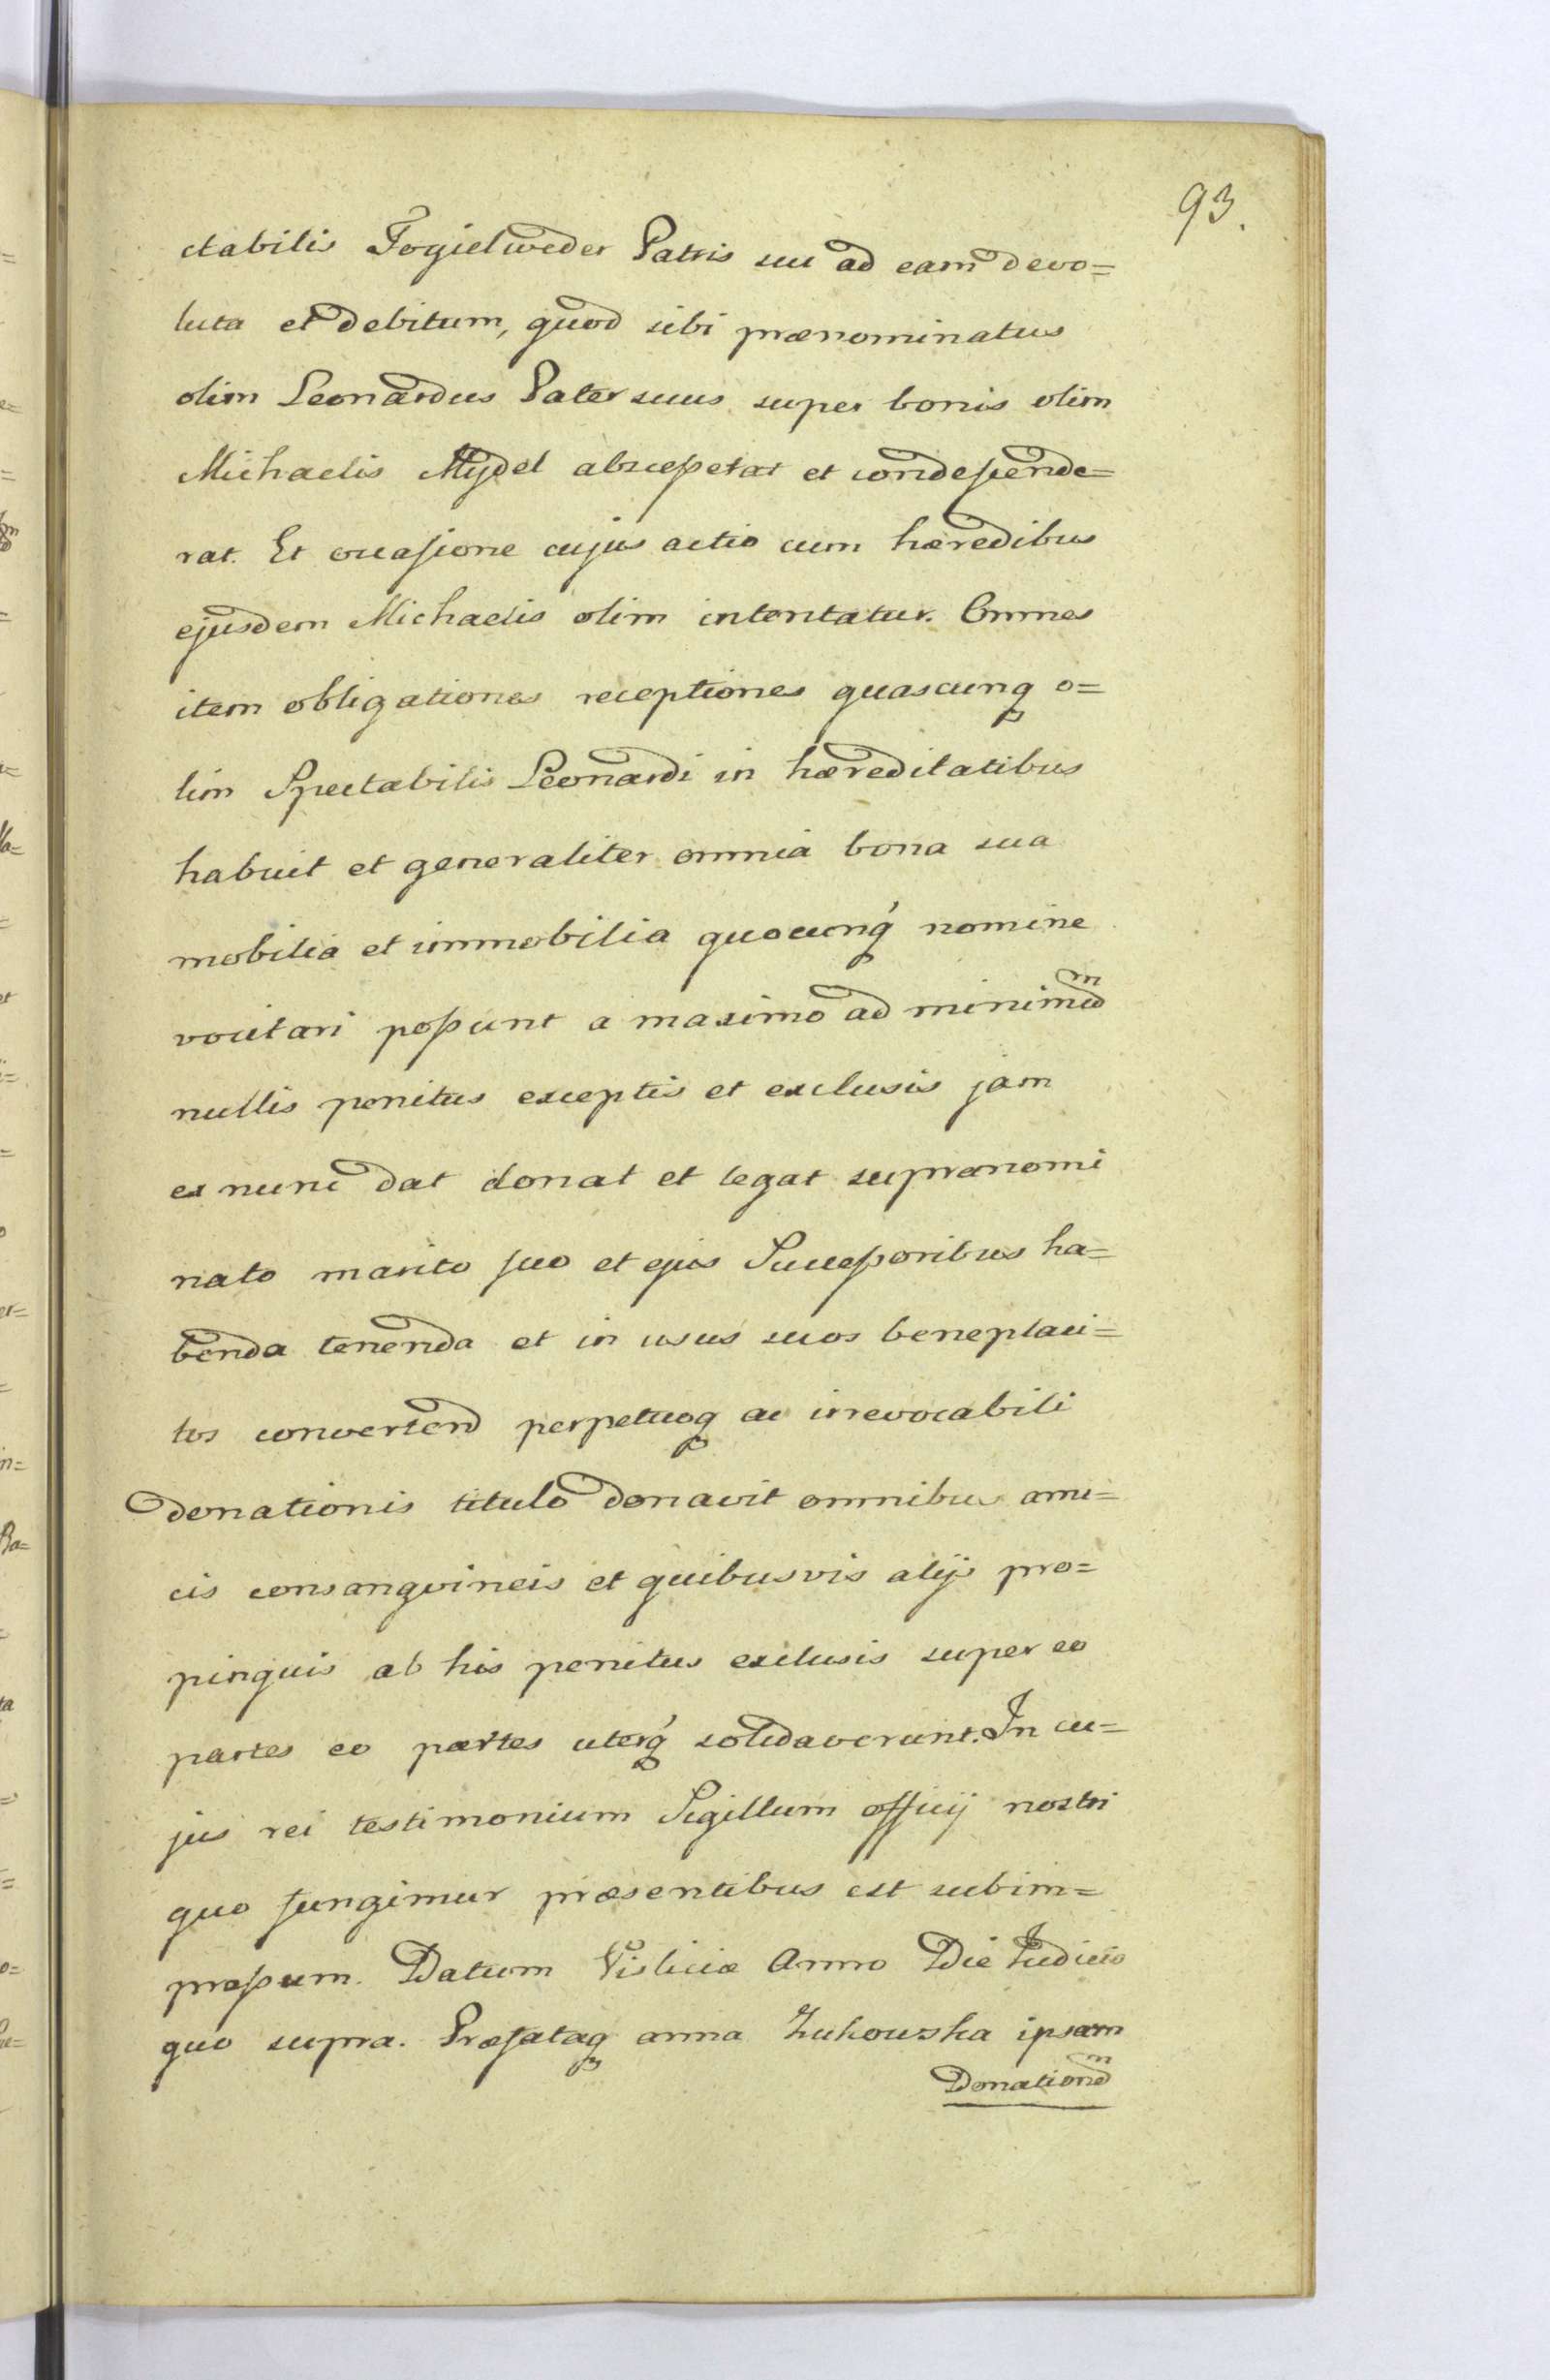 93.
ctabilis Fogielweder Patris sui ad eam devo=
luta et debitum, quod sibi prænominatus
olim Leonardus Pater suus super bonis olim
Michaelis Mydel absceßerat et condescende=
rat. Et occasione cujus actio cum hæredibus
ejusdem Michaelis olim intentatur. Omnes
item obligationes receptiones quascunq o=
lim Spectabilis Leonardi in hæreditatibus
habuit et generaliter omnia bona sua
mobilia et immobilia quocunq́ nomine
vocitari poßunt a maximo ad minimum
nullis penitus exceptis et exclusis jam
ex nunc dat donat et legat supranomi
nato marito suo et ejus Succeßoribus ha=
benda tenenda et in usus suos beneplaci=
tos convertend perpetuoq ac irrevocabili
donationis titulo donavit omnibus ami=
cis consangvineis et quibusvis alijs pro=
pinquis ab his penitus exclusis super eo
partes eo partes uterq́ solidaverunt. In cu=
jus rei testimonium Sigillum officij nostri
quo fungimur præsentibus est subim=
preßum. Datum Visliciæ Anno Die Judicio
quo supra. Præfataq anna Zukowska ipsam
Donationem